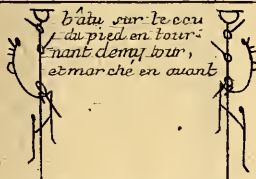 bâtu sur le cou
du pied en tour-
nant demy tour,
et marché en avant